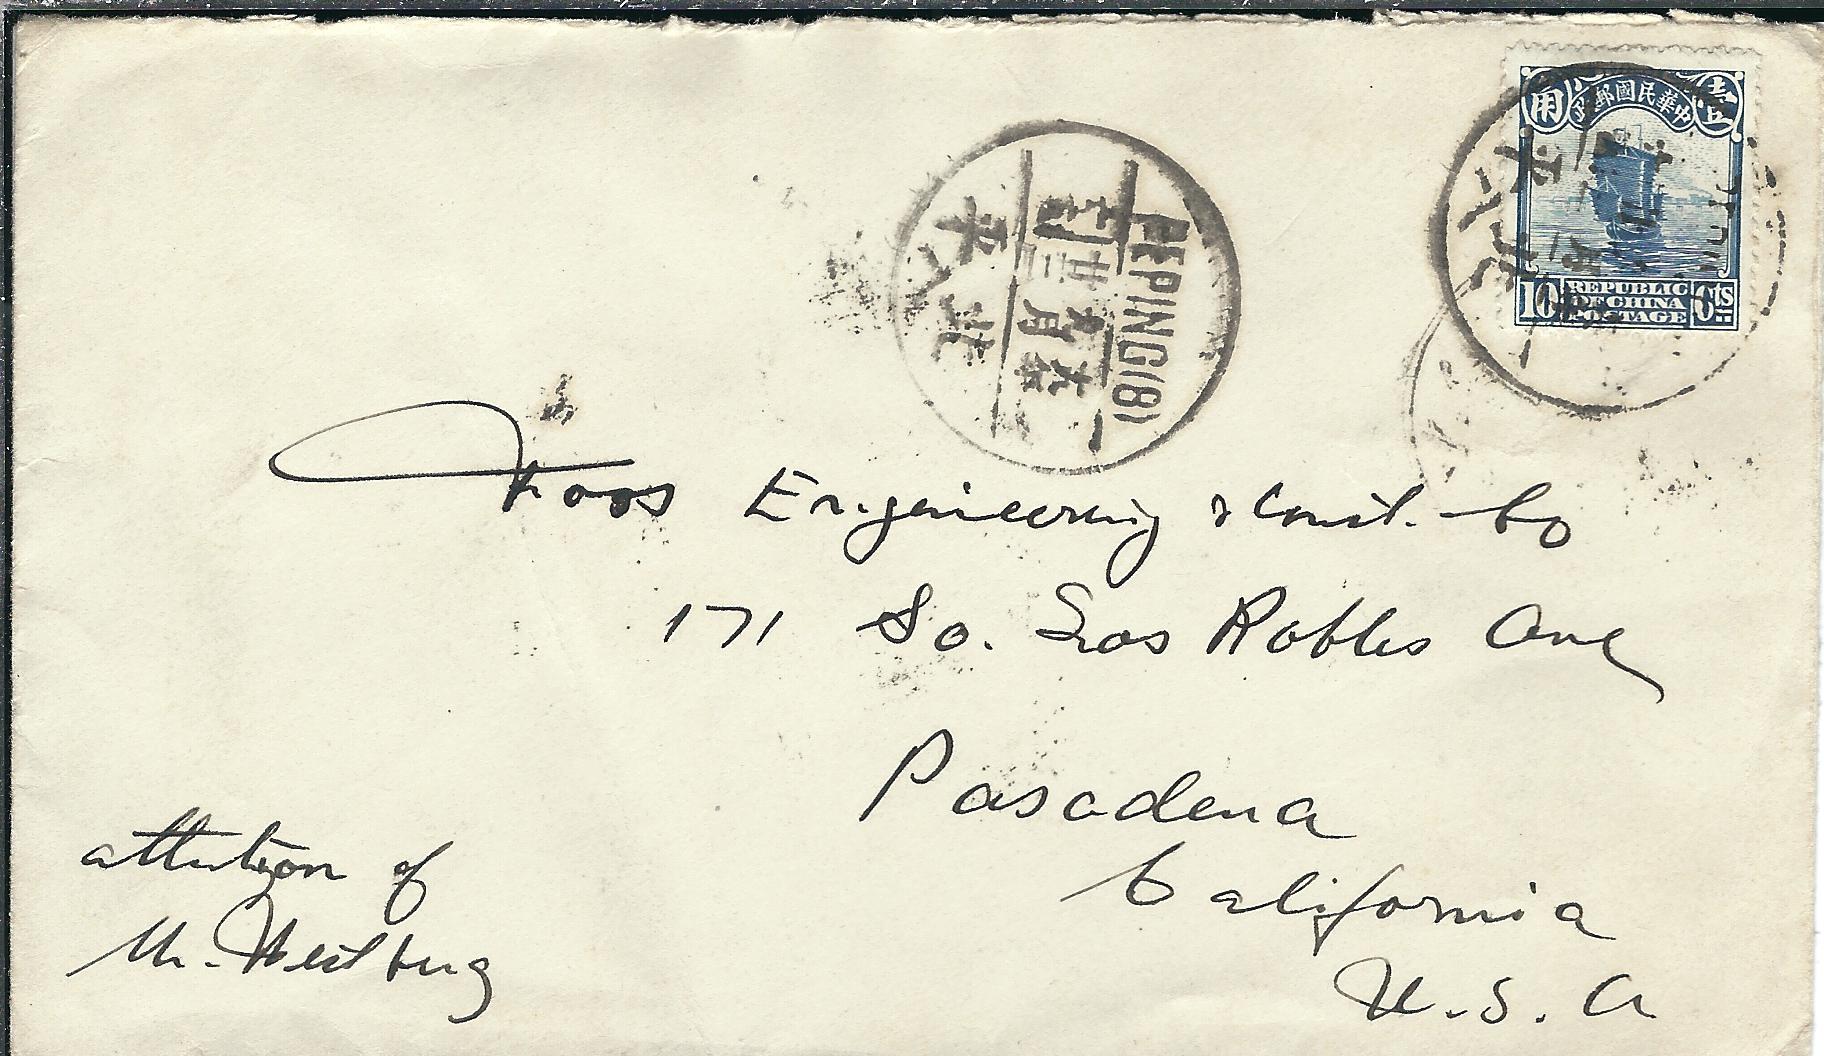 中華民國郵政
壹角
10 REPUBLIC OF CHINA POSTAGE Cts
PEPING(8)
北平
Engineering & Const. Co
171 So. Los Robles Ave
Pasadena
California
U.S.A
attention of
Mr. Westberg